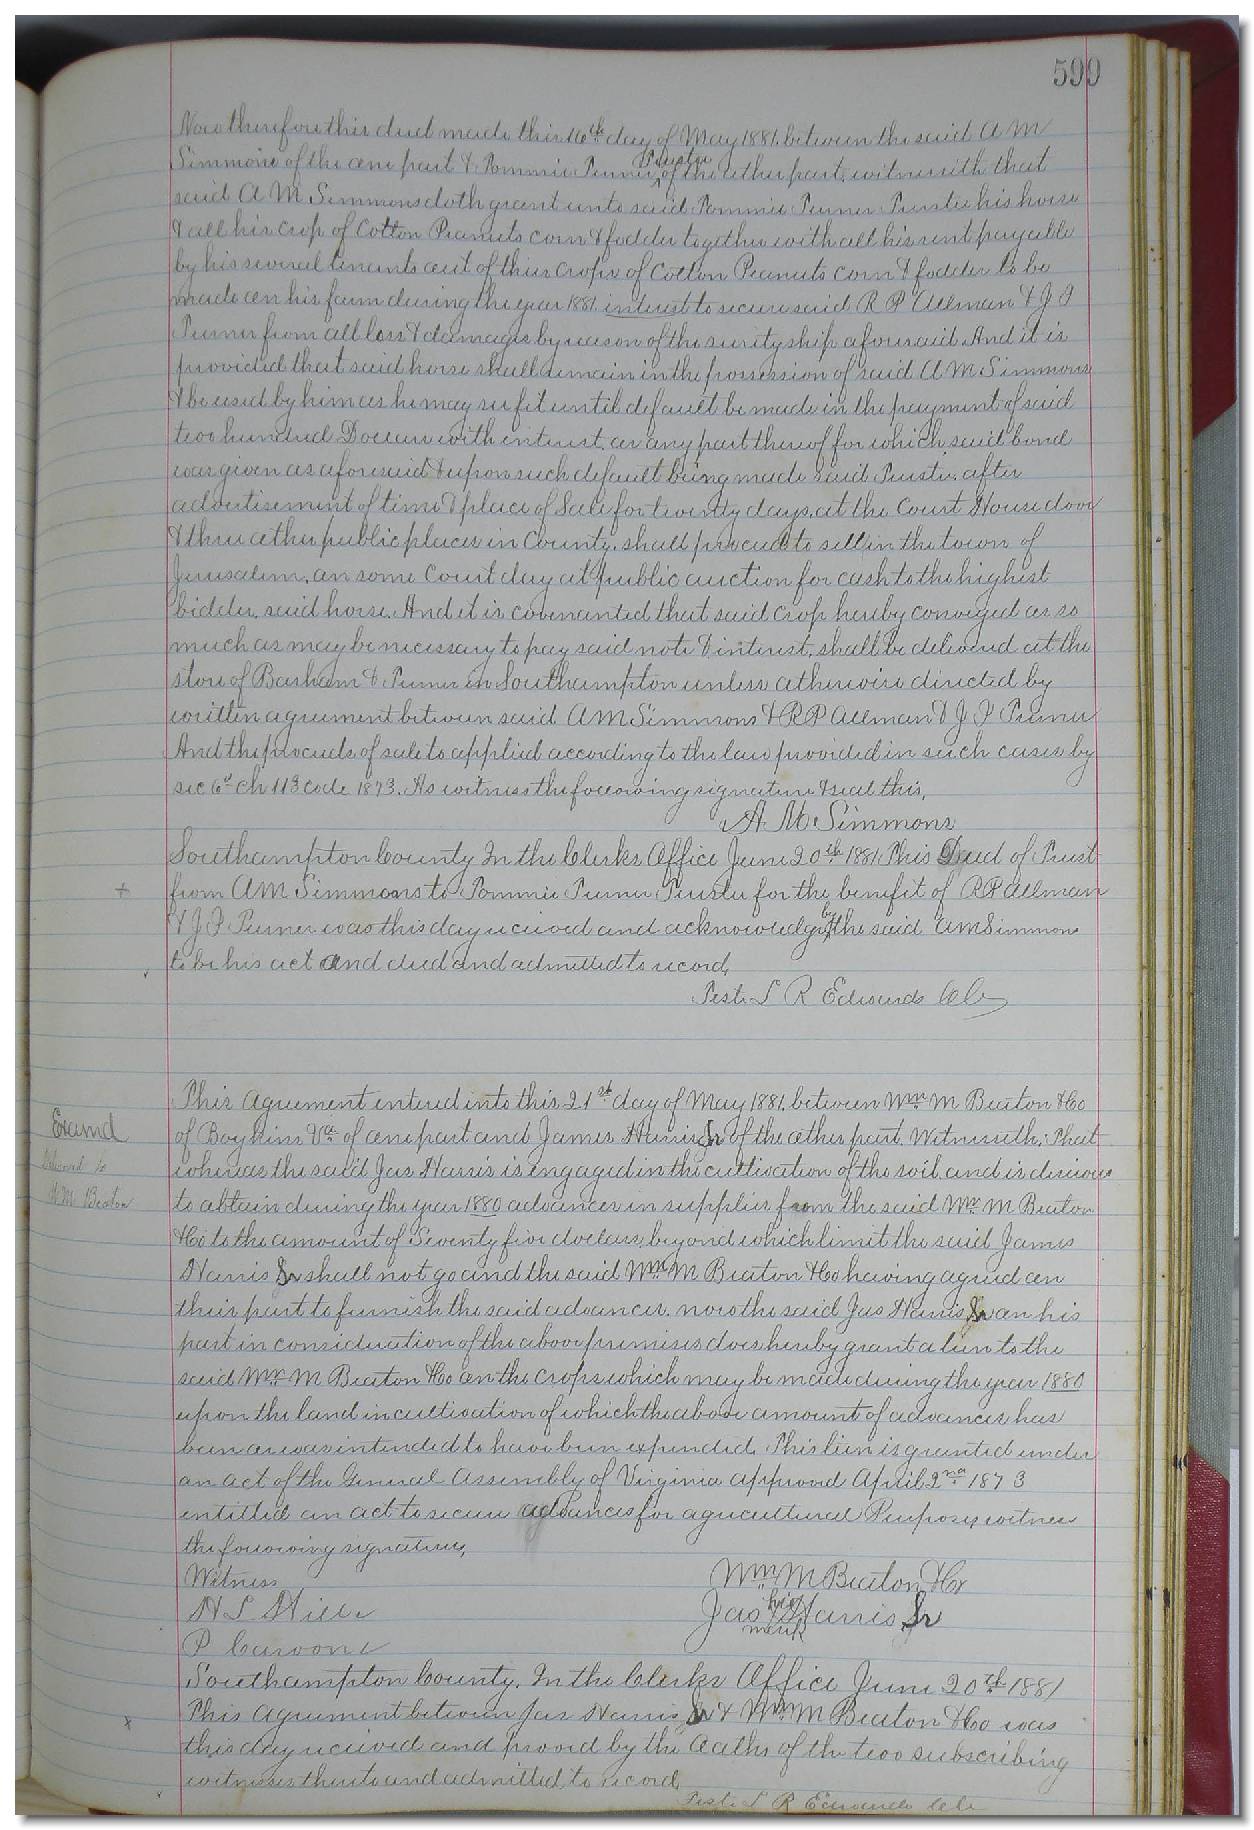 599
Now therefore this deed made this 16th day of May 1881. between the said A M
Simmons of the one part & Tommie Turner Trustee of the other part. witnesseth that
said A M Simmons doth grant unto said Tommie Turner Trustee his horse
& all his crop of Cotton Peanuts corn & fodder together with all his rent payable
by his several tenants out of their crops of Cotton Peanuts corn & fodder to be
made on his farm during the year 1881. interest to secure said R P Allman & J F
Turner from all loss & damages by reason of the suretyship aforesaid And it is
provided that said horse shall remain in the possession of said A M Simmons
& be used by him as he may see fit until default be made in the payment of said
two hundred Dollars with interest. or any part thereof for which said bond
was given as aforesaid & upon such default being made said Trustee after
advertisement of time & place of Sale for twenty days. at the Court House door
& three other public places in County. shall proceed to sell in the town of
Jerusalem. on some Court day at public auction for cash to the highest
bidder. said horse. And it is covenanted that said crop hereby conveyed or so
much as may be necessary to pay said note & interest. shall be delivered at the
store of Barham & Turner in Southampton unless otherwise directed by
written agreement between said A M Simmons & R P Allman & J F Turner
And the proceeds of sale to applied according to the law provided in such cases by
sec 6th ch 113 code 1873. As witness the following signature & seal this.
A. M. Simmons
Southampton County In the Clerks Office June 20th 1881. This Deed of Trust
+ from A M Simmons to Tommie Turner Trustee for the benefit of R P Allman
& J F Turner was this day received and acknowledged by the said A M Simmons
to be his act and deed and admitted to record,
Teste L R Edwards Clk
This Agreement entered into this 21st day of May 1881. between Wm M Beaton & Co
Examd
of Boykins Va of one part and James Harris Sr of the other part. Witnesseth: That
Delivered to
whereas the said Jas Harris is engaged in the cultivation of the soil and is desirous
W M Beaton
to obtain during the year 1880 advances in supplies from the said Wm M Beaton
& Co to the amount of Seventy five dollars, beyond which limit the said James
Harris Sr shall not go and the said Wm M Beaton & Co having agreed on
their part to furnish the said advances. now the said Jas Harris Sr on his
part in consideration of the above premises does hereby grant a lien to the
said Wm M Beaton & Co on the crops which may be made during the year 1880
upon the land in cultivation of which the above amount of advances has
been or was intended to have been expended. This lien is granted under
an act of the General Assembly of Virginia approved April 2nd 1873
entitled an act to secure advances for agricultural Purposes witness
the following signatures,
Witness
Wm M Beaton & Co
H L Hill
Jas his mark Harris Sr
P
Southampton County. In the Clerks Office June 20th 1881
x This Agreement between Jas Harris Sr & Wm M Beaton & Co was
this day received and proved by the oaths of the two subscribing
witnesses thereto and admitted to record,
Teste L R Edwards Clk